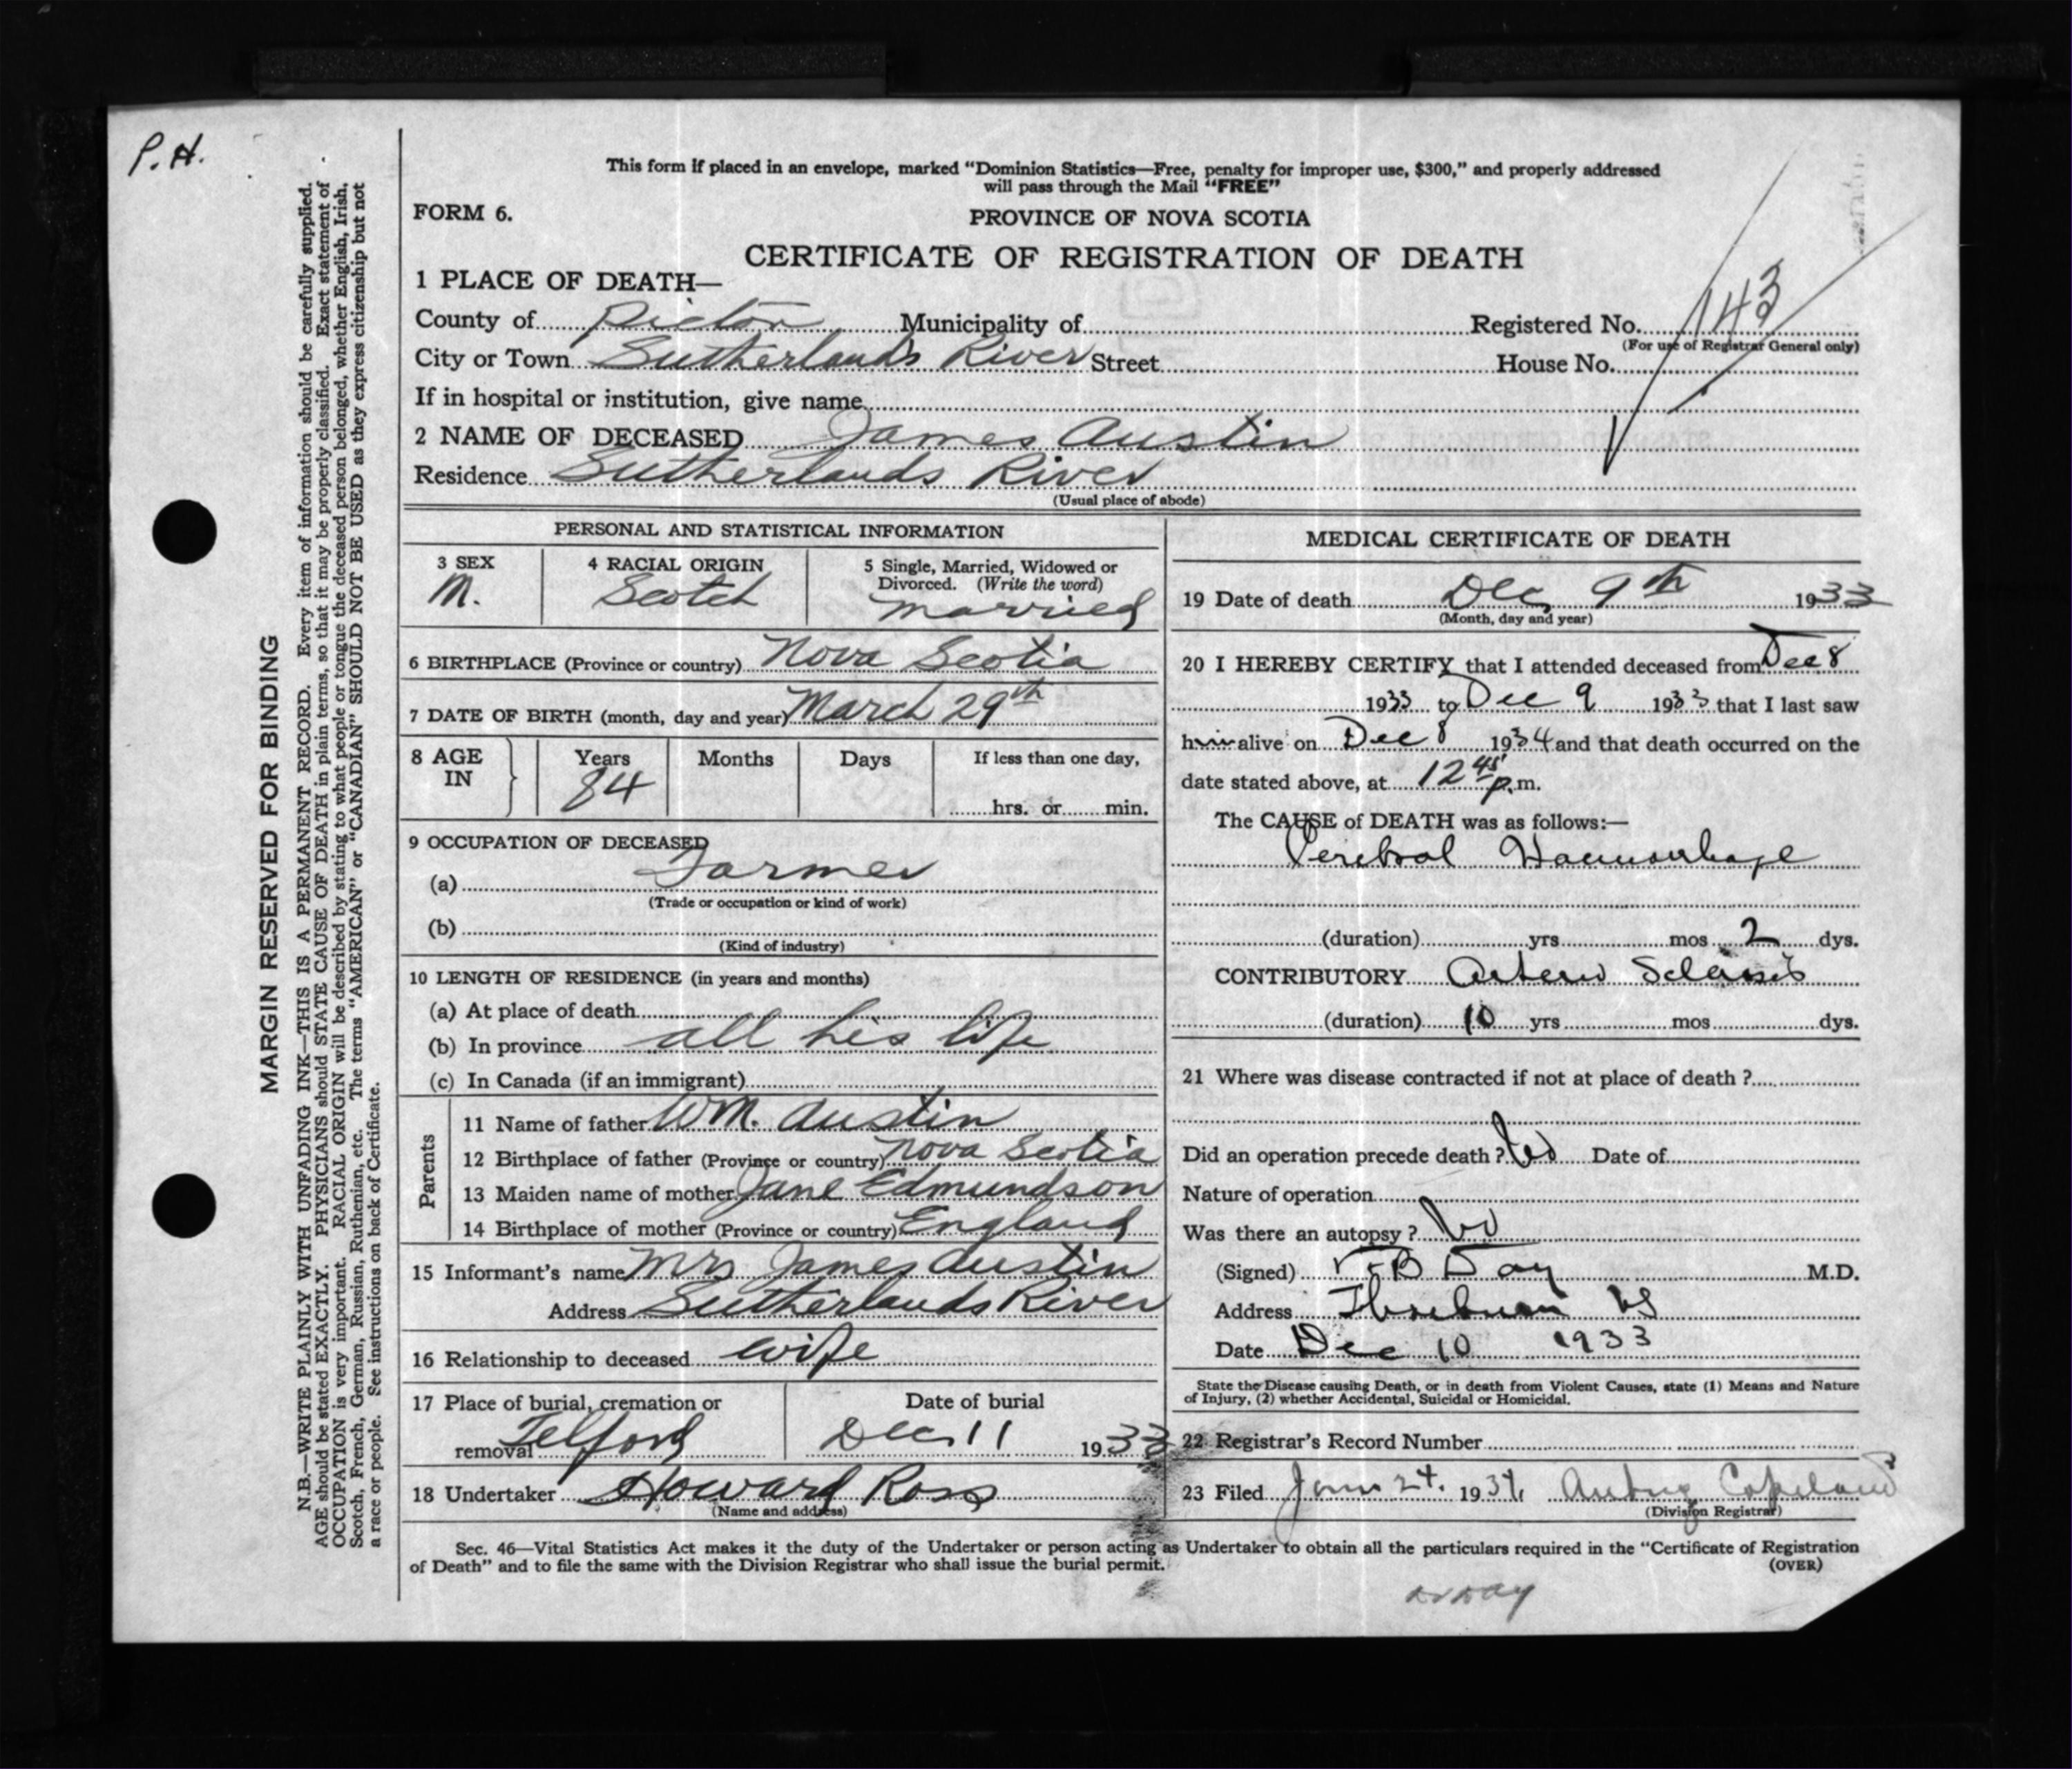 P.H.
This form if placed in an envelope, marked “Dominion Statistics—Free, penalty for improper use, $300,” and properly addressed
will pass through the Mail “FREE”
FORM 6.
PROVINCE OF NOVA SCOTIA
CERTIFICATE OF REGISTRATION OF DEATH
1 PLACE OF DEATH—
County of Pictou Municipality of Registered No. 143
(For use of Registrar General only)
City or Town Sutherlands River Street House No.
If in hospital or institution, give name
2 NAME OF DECEASED James Austin
Residence Sutherlands River
(Usual place of abode)
PERSONAL AND STATISTICAL INFORMATION
3 SEX M.
4 RACIAL ORIGIN Scotch
5 Single, Married, Widowed or
Divorced. (Write the word)
married
6 BIRTHPLACE (Province or country) Nova Scotia
7 DATE OF BIRTH (month, day and year) March 29th
8 AGE IN
Years Months Days If less than one day,
84 hrs. or min.
9 OCCUPATION OF DECEASED
(a) Farmer
(Trade or occupation or kind of work)
(b)
(Kind of industry)
10 LENGTH OF RESIDENCE (in years and months)
(a) At place of death
(b) In province all his life
(c) In Canada (if an immigrant)
Parents
11 Name of father Wm. Austin
12 Birthplace of father (Province or country) Nova Scotia
13 Maiden name of mother Jane Edmundson
14 Birthplace of mother (Province or country) England
15 Informant's name Mrs James Austin
Address Sutherlands River
16 Relationship to deceased wife
17 Place of burial, cremation or
removal Telford
Date of burial
Dec 11 1933
18 Undertaker Howard Ross
(Name and address)
MEDICAL CERTIFICATE OF DEATH
19 Date of death Dec 9th 1933
(Month, day and year)
20 I HEREBY CERTIFY that I attended deceased from Dec 8
1933 to Dec 9 1933 that I last saw
him alive on Dec 8 1934 and that death occurred on the
date stated above, at 12 45 p.m.
The CAUSE of DEATH was as follows:—
Cerebral Haemorrhage
(duration) yrs mos 2 dys.
CONTRIBUTORY Arterio Sclerosis
(duration) 10 yrs mos dys.
21 Where was disease contracted if not at place of death ?
Did an operation precede death ? No Date of
Nature of operation
Was there an autopsy ? No
(Signed) B Day M.D.
Address Thorburn NS
Date Dec 10 1933
State the Disease causing Death, or in death from Violent Causes, state (1) Means and Nature
of Injury, (2) whether Accidental, Suicidal or Homicidal.
22 Registrar's Record Number
23 Filed Jan 24. 1934, Copeland
(Division Registrar)
Sec. 46—Vital Statistics Act makes it the duty of the Undertaker or person acting as Undertaker to obtain all the particulars required in the “Certificate of Registration
of Death” and to file the same with the Division Registrar who shall issue the burial permit.
(OVER)
Dr Day
MARGIN RESERVED FOR BINDING
N.B.—WRITE PLAINLY WITH UNFADING INK—THIS IS A PERMANENT RECORD. Every item of information should be carefully supplied.
AGE should be stated EXACTLY. PHYSICIANS should STATE CAUSE OF DEATH in plain terms, so that it may be properly classified. Exact statement of
OCCUPATION is very important. RACIAL ORIGIN will be described by stating to what people or tongue the deceased person belonged, whether English, Irish,
Scotch, French, German, Russian, Ruthenian, etc. The terms “AMERICAN” or “CANADIAN” SHOULD NOT BE USED as they express citizenship but not
a race or people. See instructions on back of Certificate.